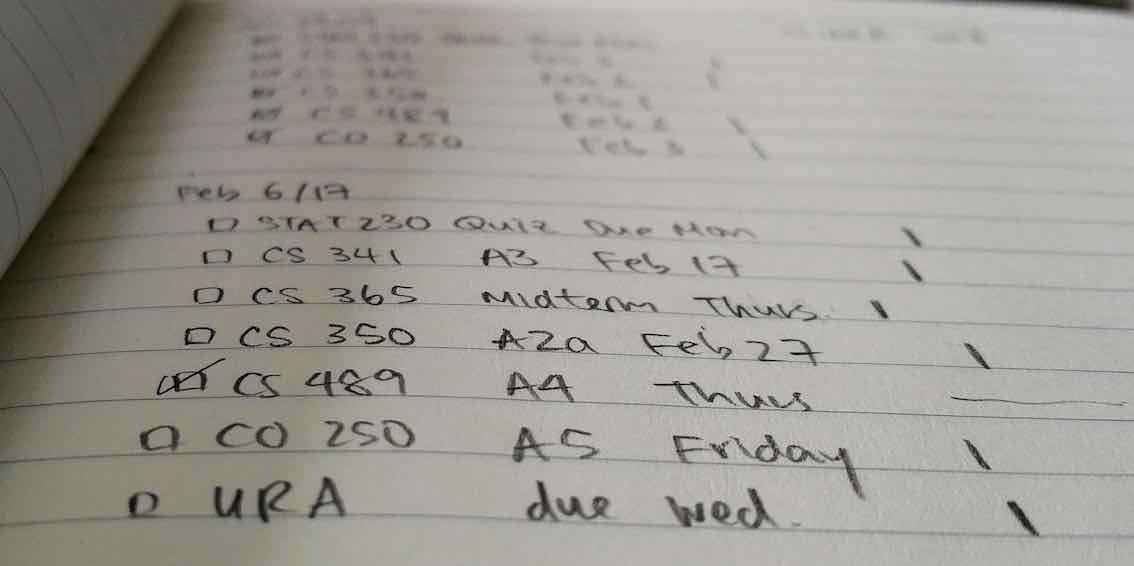 CS 341
CS 350
CS 489 Feb 2
CO 250 Feb 3
Feb 6/17
STAT 230 Quiz Due Mon
CS 341 A3 Feb 17
CS 365 Midterm Thurs.
CS 350 A2a Feb 27
CS 489 A4 Thurs
CO 250 A5 Friday
URA due wed.